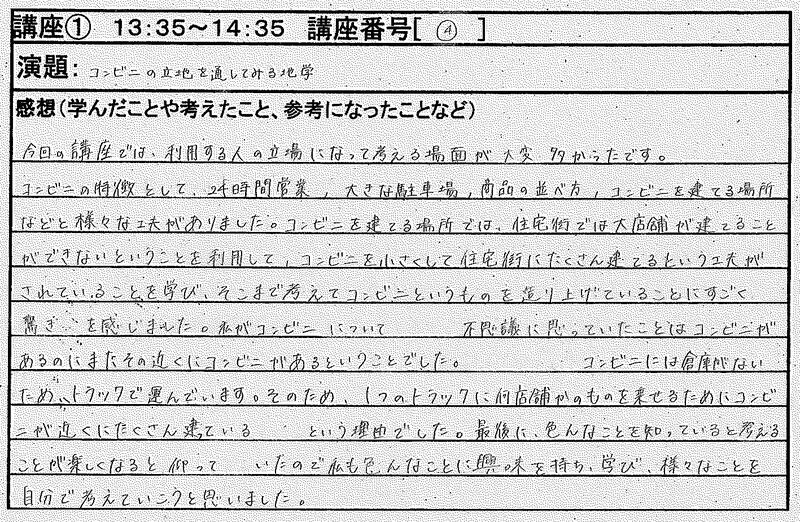 講座① 13:35～14:35 講座番号[ ④ ]
演題: コンビニの立地を通してみる地学
感想(学んだことや考えたこと、参考になったことなど)
今回の講座では、利用する人の立場になって考える場面が大変多かったです。
コンビニの特徴として、24時間営業，大きな駐車場，商品の並べ方，コンビニを建てる場所
などと様々な工夫がありました。コンビニを建てる場所では、住宅街では大店舗が建てること
ができないということを利用して，コンビニを小さくして住宅街にたくさん建てるという工夫が
されていることを学び、そこまで考えてコンビニというものを造り上げていることにすごく
驚きを感じました。私がコンビニについて 不思議に思っていたことはコンビニが
あるのにまたその近くにコンビニがあるということでした。 コンビニには倉庫がない
ため、トラックで運んでいます。そのため、1つのトラックに何店舗かのものを乗せるためにコンビ
ニが近くにたくさん建っている という理由でした。最後に、色んなことを知っていると考える
ことが楽しくなると仰って いたので私も色んなことに興味を持ち、学び、様々なことを
自分で考えていこうと思いました。